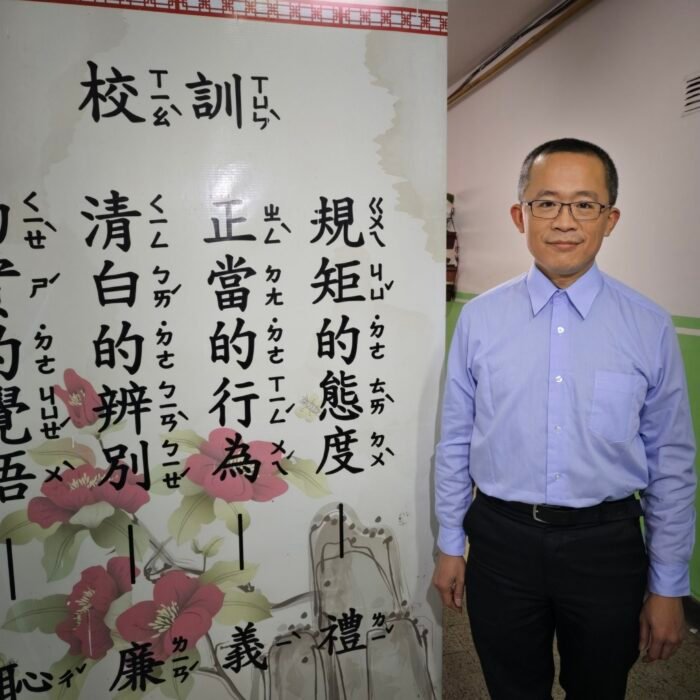 校ㄒㄧㄠˋ訓ㄒㄩㄣˋ
規ㄍㄨㄟ矩ㄐㄩˇ的˙ㄉㄜ態ㄊㄞˋ度ㄉㄨˋ—禮ㄌㄧˇ
正ㄓㄥˋ當ㄉㄤ的˙ㄉㄜ行ㄒㄧㄥˊ為ㄨㄟˊ—義ㄧˋ
清ㄑㄧㄥ白ㄅㄞˊ的˙ㄉㄜ辨ㄅㄧㄢˋ別ㄅㄧㄝˊ—廉ㄌㄧㄢˊ
切ㄑㄧㄝˋ實ㄕˊ的˙ㄉㄜ覺ㄐㄩㄝˊ悟ㄨˋ—恥ㄔˇ